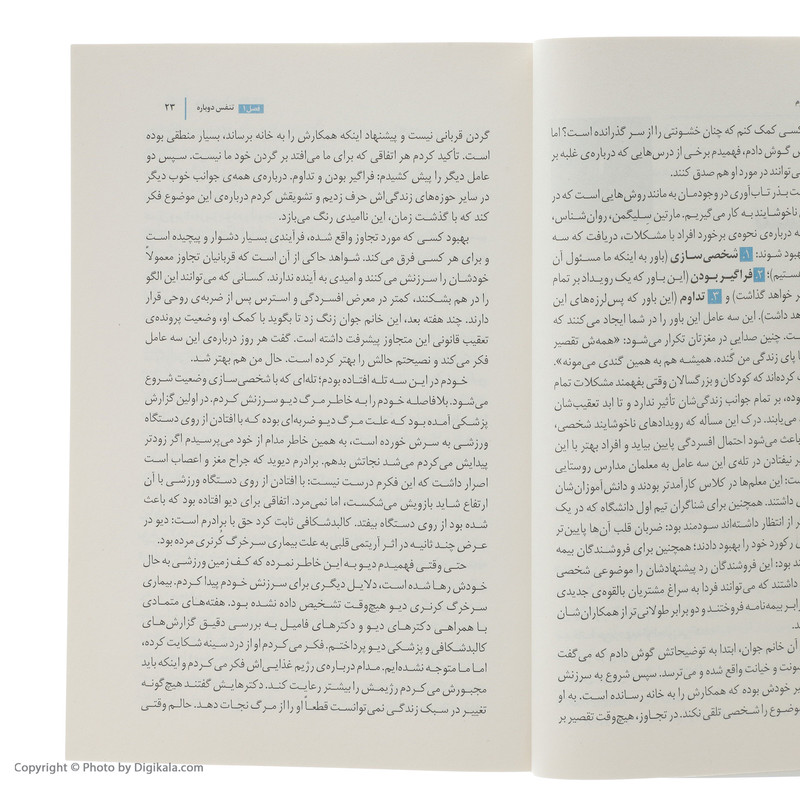 کسی کمک کنم که چنان خشونتی را از سر گذرانده است؟ اما
گوش دادم، فهمیدم برخی از درس‌هایی که درباره‌ی غلبه بر
می‌توانند در مورد او هم صدق کنند.
بذر تاب‌آوری در وجودمان به مانند روش‌هایی است که در
ناخوشایند به کار می‌گیریم. مارتین سِلیگمن، روان‌شناس،
درباره‌ی نحوه‌ی برخورد افراد با مشکلات، دریافت که سه
بهبود شوند: ۱. شخصی‌سازی (باور به اینکه ما مسئول آن
هستیم)؛ ۲. فراگیر بودن (این باور که یک رویداد بر تمام
خواهد گذاشت) و ۳. تداوم (این باور که پس‌لرزه‌های این
خواهد داشت). این سه عامل این باور را در شما ایجاد می‌کنند که
چنین صدایی در مغزتان تکرار می‌شود: «همه‌ش تقصیر
پای زندگی من گنده. همیشه هم به همین گندی می‌مونه».
کرده‌اند که کودکان و بزرگسالان وقتی بفهمند مشکلات تمام
بر تمام جوانب زندگی‌شان تأثیر ندارد و تا ابد تعقیب‌شان
می‌یابند. درک این مسأله که رویدادهای ناخوشایند شخصی،
باعث می‌شود احتمال افسردگی پایین بیاید و افراد بهتر با این
نیفتادن در تله‌ی این سه عامل به معلمان مدارس روستایی
این معلم‌ها در کلاس کارآمدتر بودند و دانش‌آموزان‌شان
داشتند. همچنین برای شناگران تیم اول دانشگاه که در یک
از انتظار داشته‌اند سودمند بود: ضربان قلب آن‌ها پایین‌تر
رکورد خود را بهبود دادند؛ همچنین برای فروشندگان بیمه
بود: این فروشندگان رد پیشنهادشان را موضوعی شخصی
داشتند که می‌توانند فردا به سراغ مشتریان بالقوه‌ی جدیدی
برابر بیمه‌نامه فروختند و دو برابر طولانی‌تر از همکاران‌شان
آن خانم جوان، ابتدا به توضیحاتش گوش دادم که می‌گفت
و خیانت واقع شده و می‌ترسد. سپس شروع به سرزنش
خودش بوده که همکارش را به خانه رسانده است. به او
موضوع را شخصی تلقی نکند. در تجاوز، هیچ‌وقت تقصیر بر
فصل ۱ تنفس دوباره ۲۳
گردن قربانی نیست و پیشنهاد اینکه همکارش را به خانه برساند، بسیار منطقی بوده
است. تأکید کردم هر اتفاقی که برای ما می‌افتد بر گردن خود ما نیست. سپس دو
عامل دیگر را پیش کشیدم: فراگیر بودن و تداوم. درباره‌ی همه‌ی جوانب خوب دیگر
در سایر حوزه‌های زندگی‌اش حرف زدیم و تشویقش کردم درباره‌ی این موضوع فکر
کند که با گذشت زمان، این ناامیدی رنگ می‌بازد.
بهبود کسی که مورد تجاوز واقع شده، فرآیندی بسیار دشوار و پیچیده است
و برای هر کسی فرق می‌کند. شواهد حاکی از آن است که قربانیان تجاوز معمولاً
خودشان را سرزنش می‌کنند و امیدی به آینده ندارند. کسانی که می‌توانند این الگو
را در هم بشکنند، کمتر در معرض افسردگی و استرس پس از ضربه‌ی روحی قرار
دارند. چند هفته بعد، این خانم جوان زنگ زد تا بگوید با کمک او، وضعیت پرونده‌ی
تعقیب قانونی این متجاوز پیشرفت داشته است. گفت هر روز درباره‌ی این سه عامل
فکر می‌کند و نصیحتم حالش را بهتر کرده است. حال من هم بهتر شد.
خودم در این سه تله افتاده بودم؛ تله‌ای که با شخصی‌سازی وضعیت شروع
می‌شود. بلافاصله خودم را به خاطر مرگ دیو سرزنش کردم. در اولین گزارش
پزشکی آمده بود که علت مرگ دیو ضربه‌ای بوده که با افتادن از روی دستگاه
ورزشی به سرش خورده است، به همین خاطر مدام از خود می‌پرسیدم اگر زودتر
پیدایش می‌کردم می‌شد نجاتش بدهم. برادرم دیوید که جراح مغز و اعصاب است
اصرار داشت که این فکرم درست نیست: با افتادن از روی دستگاه ورزشی با آن
ارتفاع شاید بازویش می‌شکست، اما نمی‌مرد. اتفاقی برای دیو افتاده بود که باعث
شده بود از روی دستگاه بیفتد. کالبدشکافی ثابت کرد حق با برادرم است: دیو در
عرض چند ثانیه در اثر آریتمی قلبی به علت بیماری سرخرگ کُرنری مرده بود.
حتی وقتی فهمیدم دیو به این خاطر نمرده که کف زمین ورزشی به حال
خودش رها شده است، دلایل دیگری برای سرزنش خودم پیدا کردم. بیماری
سرخرگ کرنری دیو هیچ‌وقت تشخیص داده نشده بود. هفته‌های متمادی
با همراهی دکترهای دیو و دکترهای فامیل به بررسی دقیق گزارش‌های
کالبدشکافی و پزشکی دیو پرداختم. فکر می‌کردم او از درد سینه شکایت کرده،
اما ما متوجه نشده‌ایم. مدام درباره‌ی رژیم غذایی‌اش فکر می‌کردم و اینکه باید
مجبورش می‌کردم رژیمش را بیشتر رعایت کند. دکترهایش گفتند هیچ‌گونه
تغییر در سبک زندگی نمی‌توانست قطعاً او را از مرگ نجات دهد. حالم وقتی
Copyright © Photo by Digikala.com